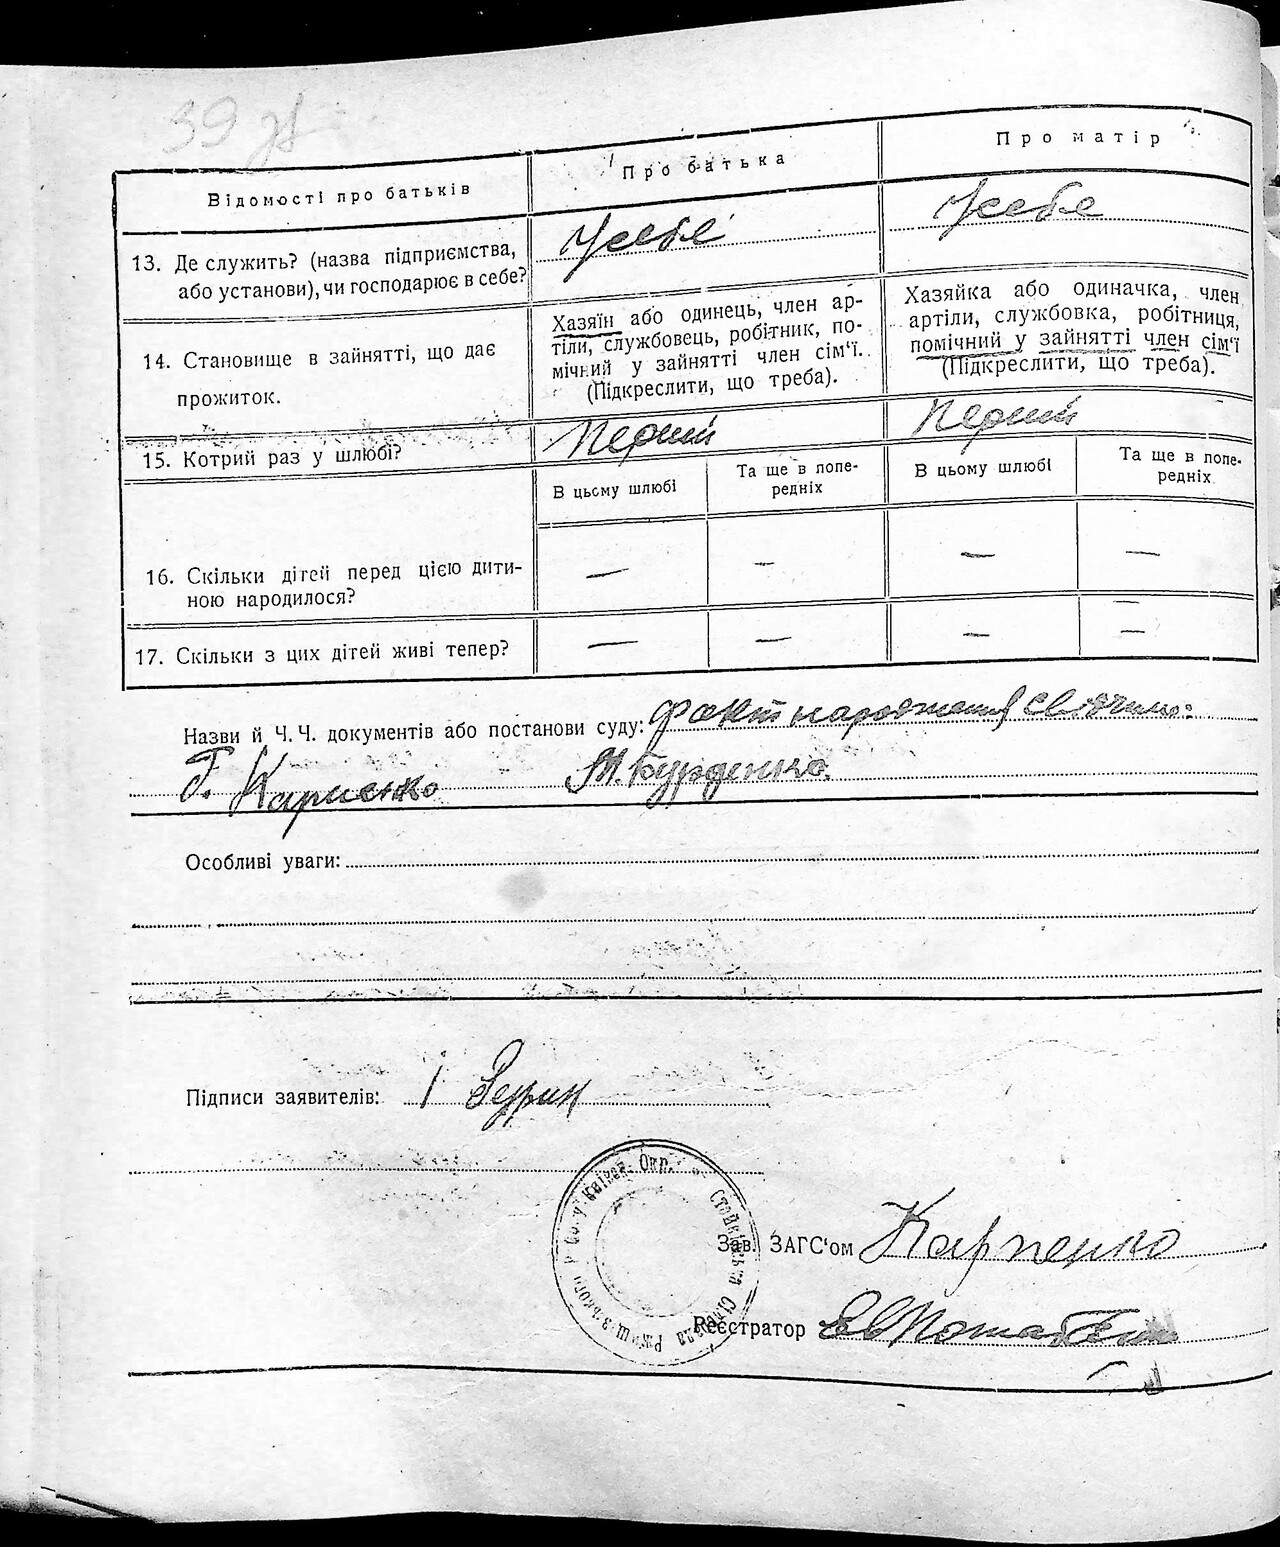 39 зв
Відомості про батьків
Про батька
Про матір
13. Де служить? (назва підприємства,
або установи), чи господарює в себе?
У себе
У себе
14. Становище в зайнятті, що дає
прожиток.
Хазяїн або одинець, член ар-
тіли, службовець, робітник, по-
мічний у зайнятті член сім‘ї.
(Підкреслити, що треба).
Хазяйка або одиначка, член
артіли, службовка, робітниця,
помічний у зайнятті член сім‘ї
(Підкреслити, що треба).
15. Котрий раз у шлюбі?
Перший
Перший
В цьому шлюбі
Та ще в попе-
редніх
В цьому шлюбі
Та ще в попе-
редніх
16. Скільки дітей перед цією дити-
ною народилося?
— — — —
17. Скільки з цих дітей живі тепер?
— — — —
Назви й Ч. Ч. документів або постанови суду: Факт народження свідчимо:
Г. Карпенко М. Бурденко.
Особливі уваги:
Підписи заявителів: І
Окр.
Сільрада
Зав. ЗАГС‘ом Карпенко
Реєстратор